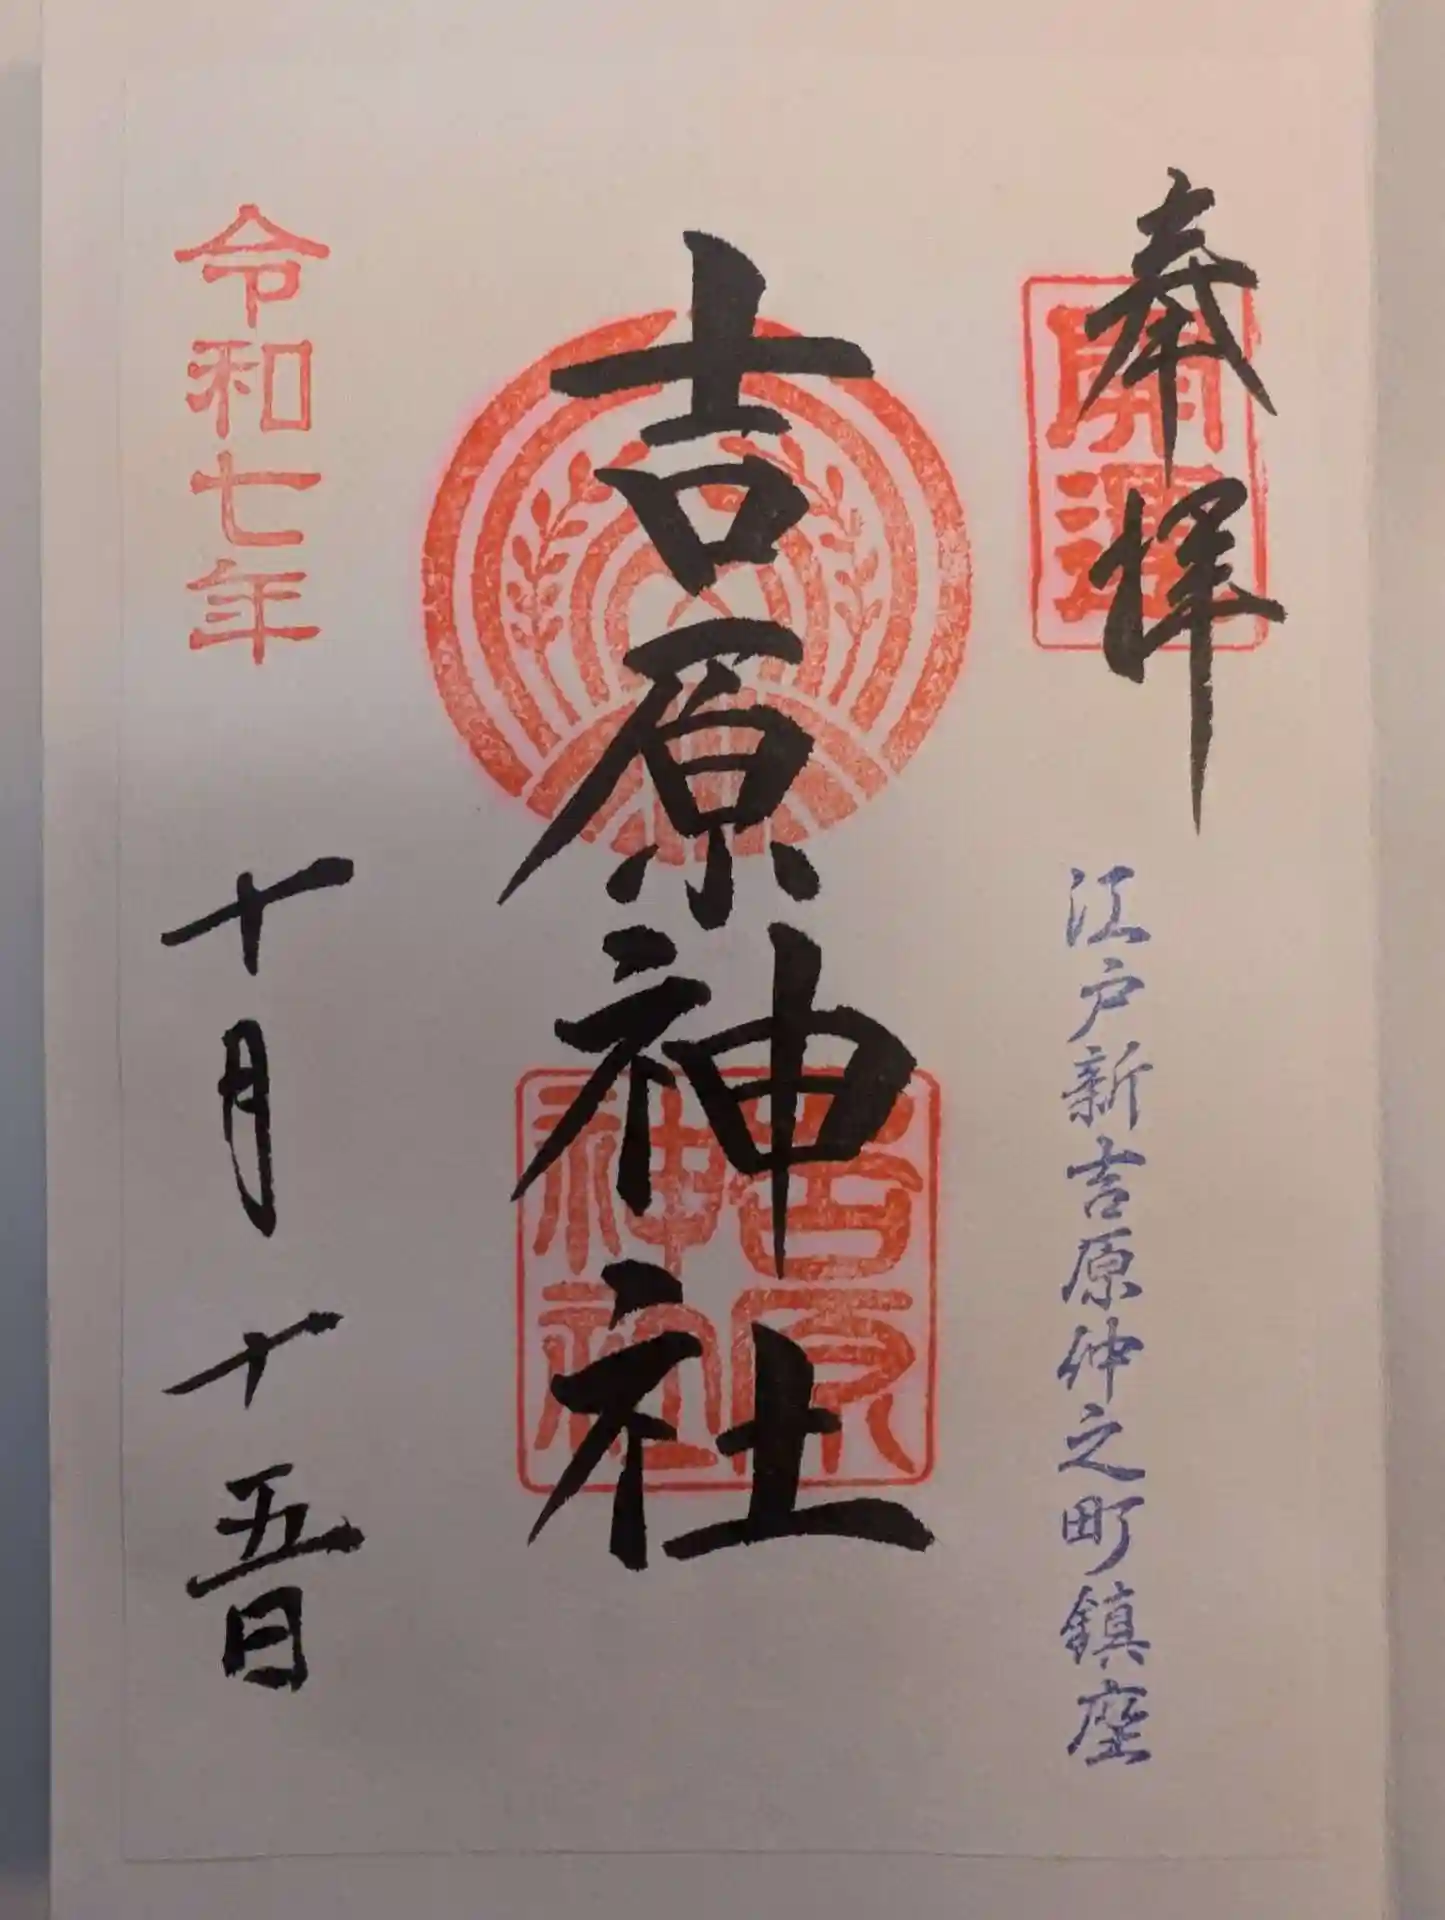 奉拝
開運
江戸新吉原仲之町鎮座
吉原神社
吉原神社
令和七年
十月十五日